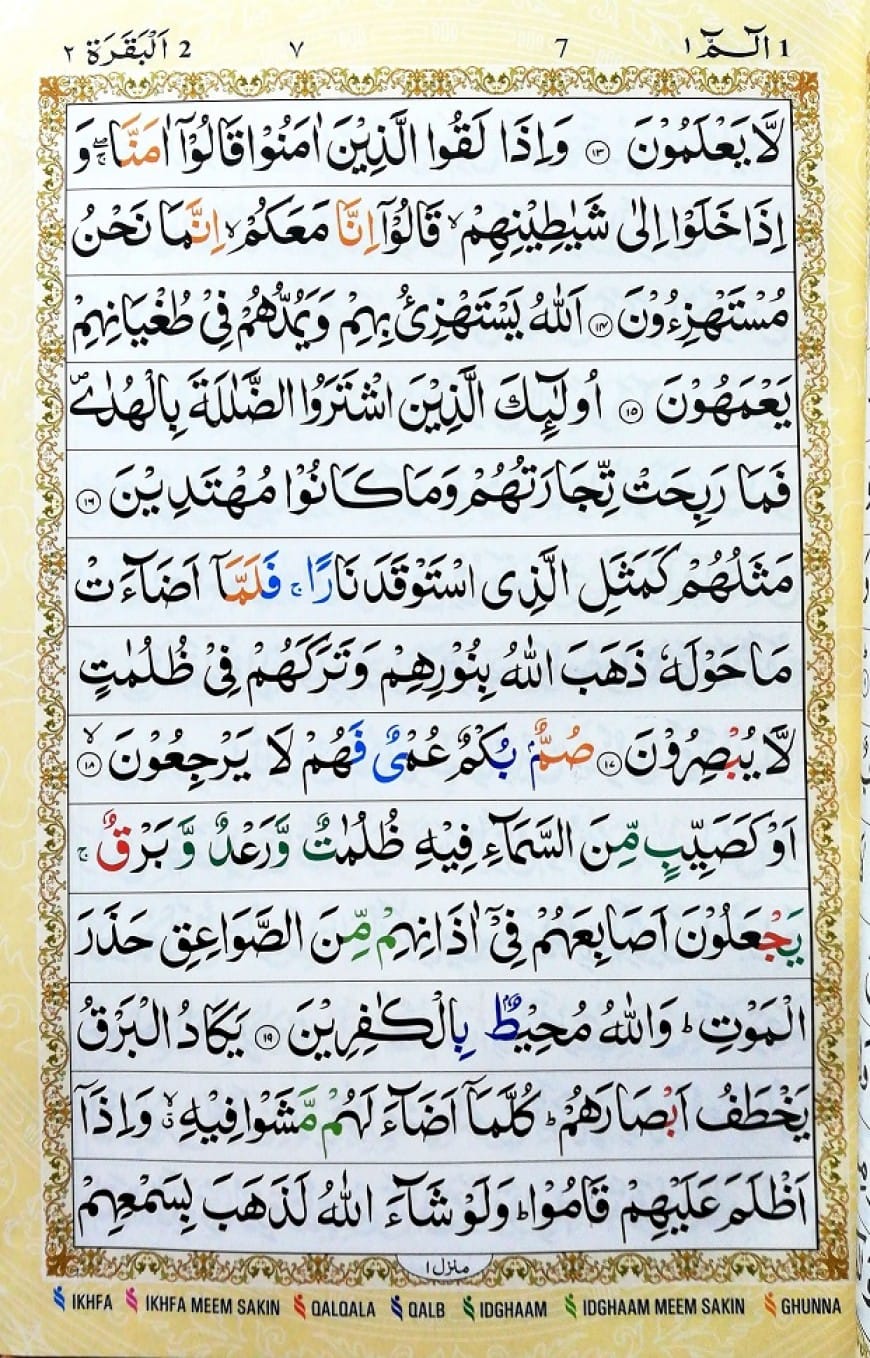 1 الٓمّٓ ١ 7 ٧ 2 اَلْبَقَرَة ٢
لَّا يَعْلَمُوْنَ ۝١٣ وَاِذَا لَقُوا الَّذِيْنَ اٰمَنُوْا قَالُوْۤا اٰمَنَّا ۖۚ وَ
اِذَا خَلَوْا اِلٰى شَيٰطِيْنِهِمْ ۙ قَالُوْۤا اِنَّا مَعَكُمْ ۙ اِنَّمَا نَحْنُ
مُسْتَهْزِءُوْنَ ۝١٤ اَللّٰهُ يَسْتَهْزِئُ بِهِمْ وَيَمُدُّهُمْ فِيْ طُغْيَانِهِمْ
يَعْمَهُوْنَ ۝١٥ اُولٰٓئِكَ الَّذِيْنَ اشْتَرَوُا الضَّلٰلَةَ بِالْهُدٰى ۪
فَمَا رَبِحَتْ تِّجَارَتُهُمْ وَمَا كَانُوْا مُهْتَدِيْنَ ۝١٦
مَثَلُهُمْ كَمَثَلِ الَّذِى اسْتَوْقَدَ نَارًا ۚ فَلَمَّاۤ اَضَآءَتْ
مَا حَوْلَهٗ ذَهَبَ اللّٰهُ بِنُوْرِهِمْ وَتَرَكَهُمْ فِيْ ظُلُمٰتٍ
لَّا يُبْصِرُوْنَ ۝١٧ صُمٌّۢ بُكْمٌ عُمْيٌ فَهُمْ لَا يَرْجِعُوْنَ ۝١٨ ۙ
اَوْ كَصَيِّبٍ مِّنَ السَّمَآءِ فِيْهِ ظُلُمٰتٌ وَّرَعْدٌ وَّبَرْقٌ ۚ
يَجْعَلُوْنَ اَصَابِعَهُمْ فِيْۤ اٰذَانِهِمْ مِّنَ الصَّوَاعِقِ حَذَرَ
الْمَوْتِ ؕ وَاللّٰهُ مُحِيْطٌۢ بِالْكٰفِرِيْنَ ۝١٩ يَكَادُ الْبَرْقُ
يَخْطَفُ اَبْصَارَهُمْ ؕ كُلَّمَاۤ اَضَآءَ لَهُمْ مَّشَوْا فِيْهِ ۙۗ وَاِذَاۤ
اَظْلَمَ عَلَيْهِمْ قَامُوْا ؕ وَلَوْ شَآءَ اللّٰهُ لَذَهَبَ بِسَمْعِهِمْ
منزل ١
IKHFA IKHFA MEEM SAKIN QALQALA QALB IDGHAAM IDGHAAM MEEM SAKIN GHUNNA